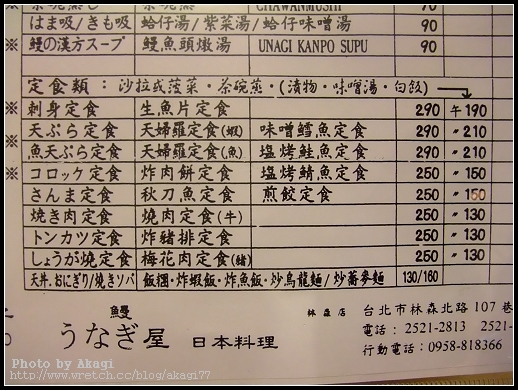 CHAWANMUSHI
はま吸/きも吸 蛤仔湯/紫菜湯/蛤仔味噌湯 90
※ 鰻の漢方スープ 鰻魚頭燉湯 UNAGI KANPO SUPU 90
定食類：沙拉或菠菜・茶碗蒸・(漬物・味噌湯・白飯)
※ 刺身定食 生魚片定食 290 午190
天ぷら定食 天婦羅定食(蝦) 味噌鱈魚定食 290 〃210
※ 魚天ぷら定食 天婦羅定食(魚) 塩烤鮭魚定食 290 〃210
※ コロッケ定食 炸肉餅定食 塩烤鯖魚定食 250 〃150
さんま定食 秋刀魚定食 煎餃定食 250 〃150
焼き肉定食 燒肉定食(牛) 250 〃130
トンカツ定食 炸豬排定食 250 〃130
しょうが焼定食 梅花肉定食(豬) 250 〃130
天丼.おにぎり/焼きソバ 飯糰・炸蝦飯・炸魚飯・炒烏龍麵/炒蕎麥麵 130/160
鰻
うなぎ屋 日本料理
林森店 台北市林森北路107巷
電話：2521-2813 2521-
行動電話：0958-818366
Photo by Akagi
http://www.wretch.cc/blog/akagi77